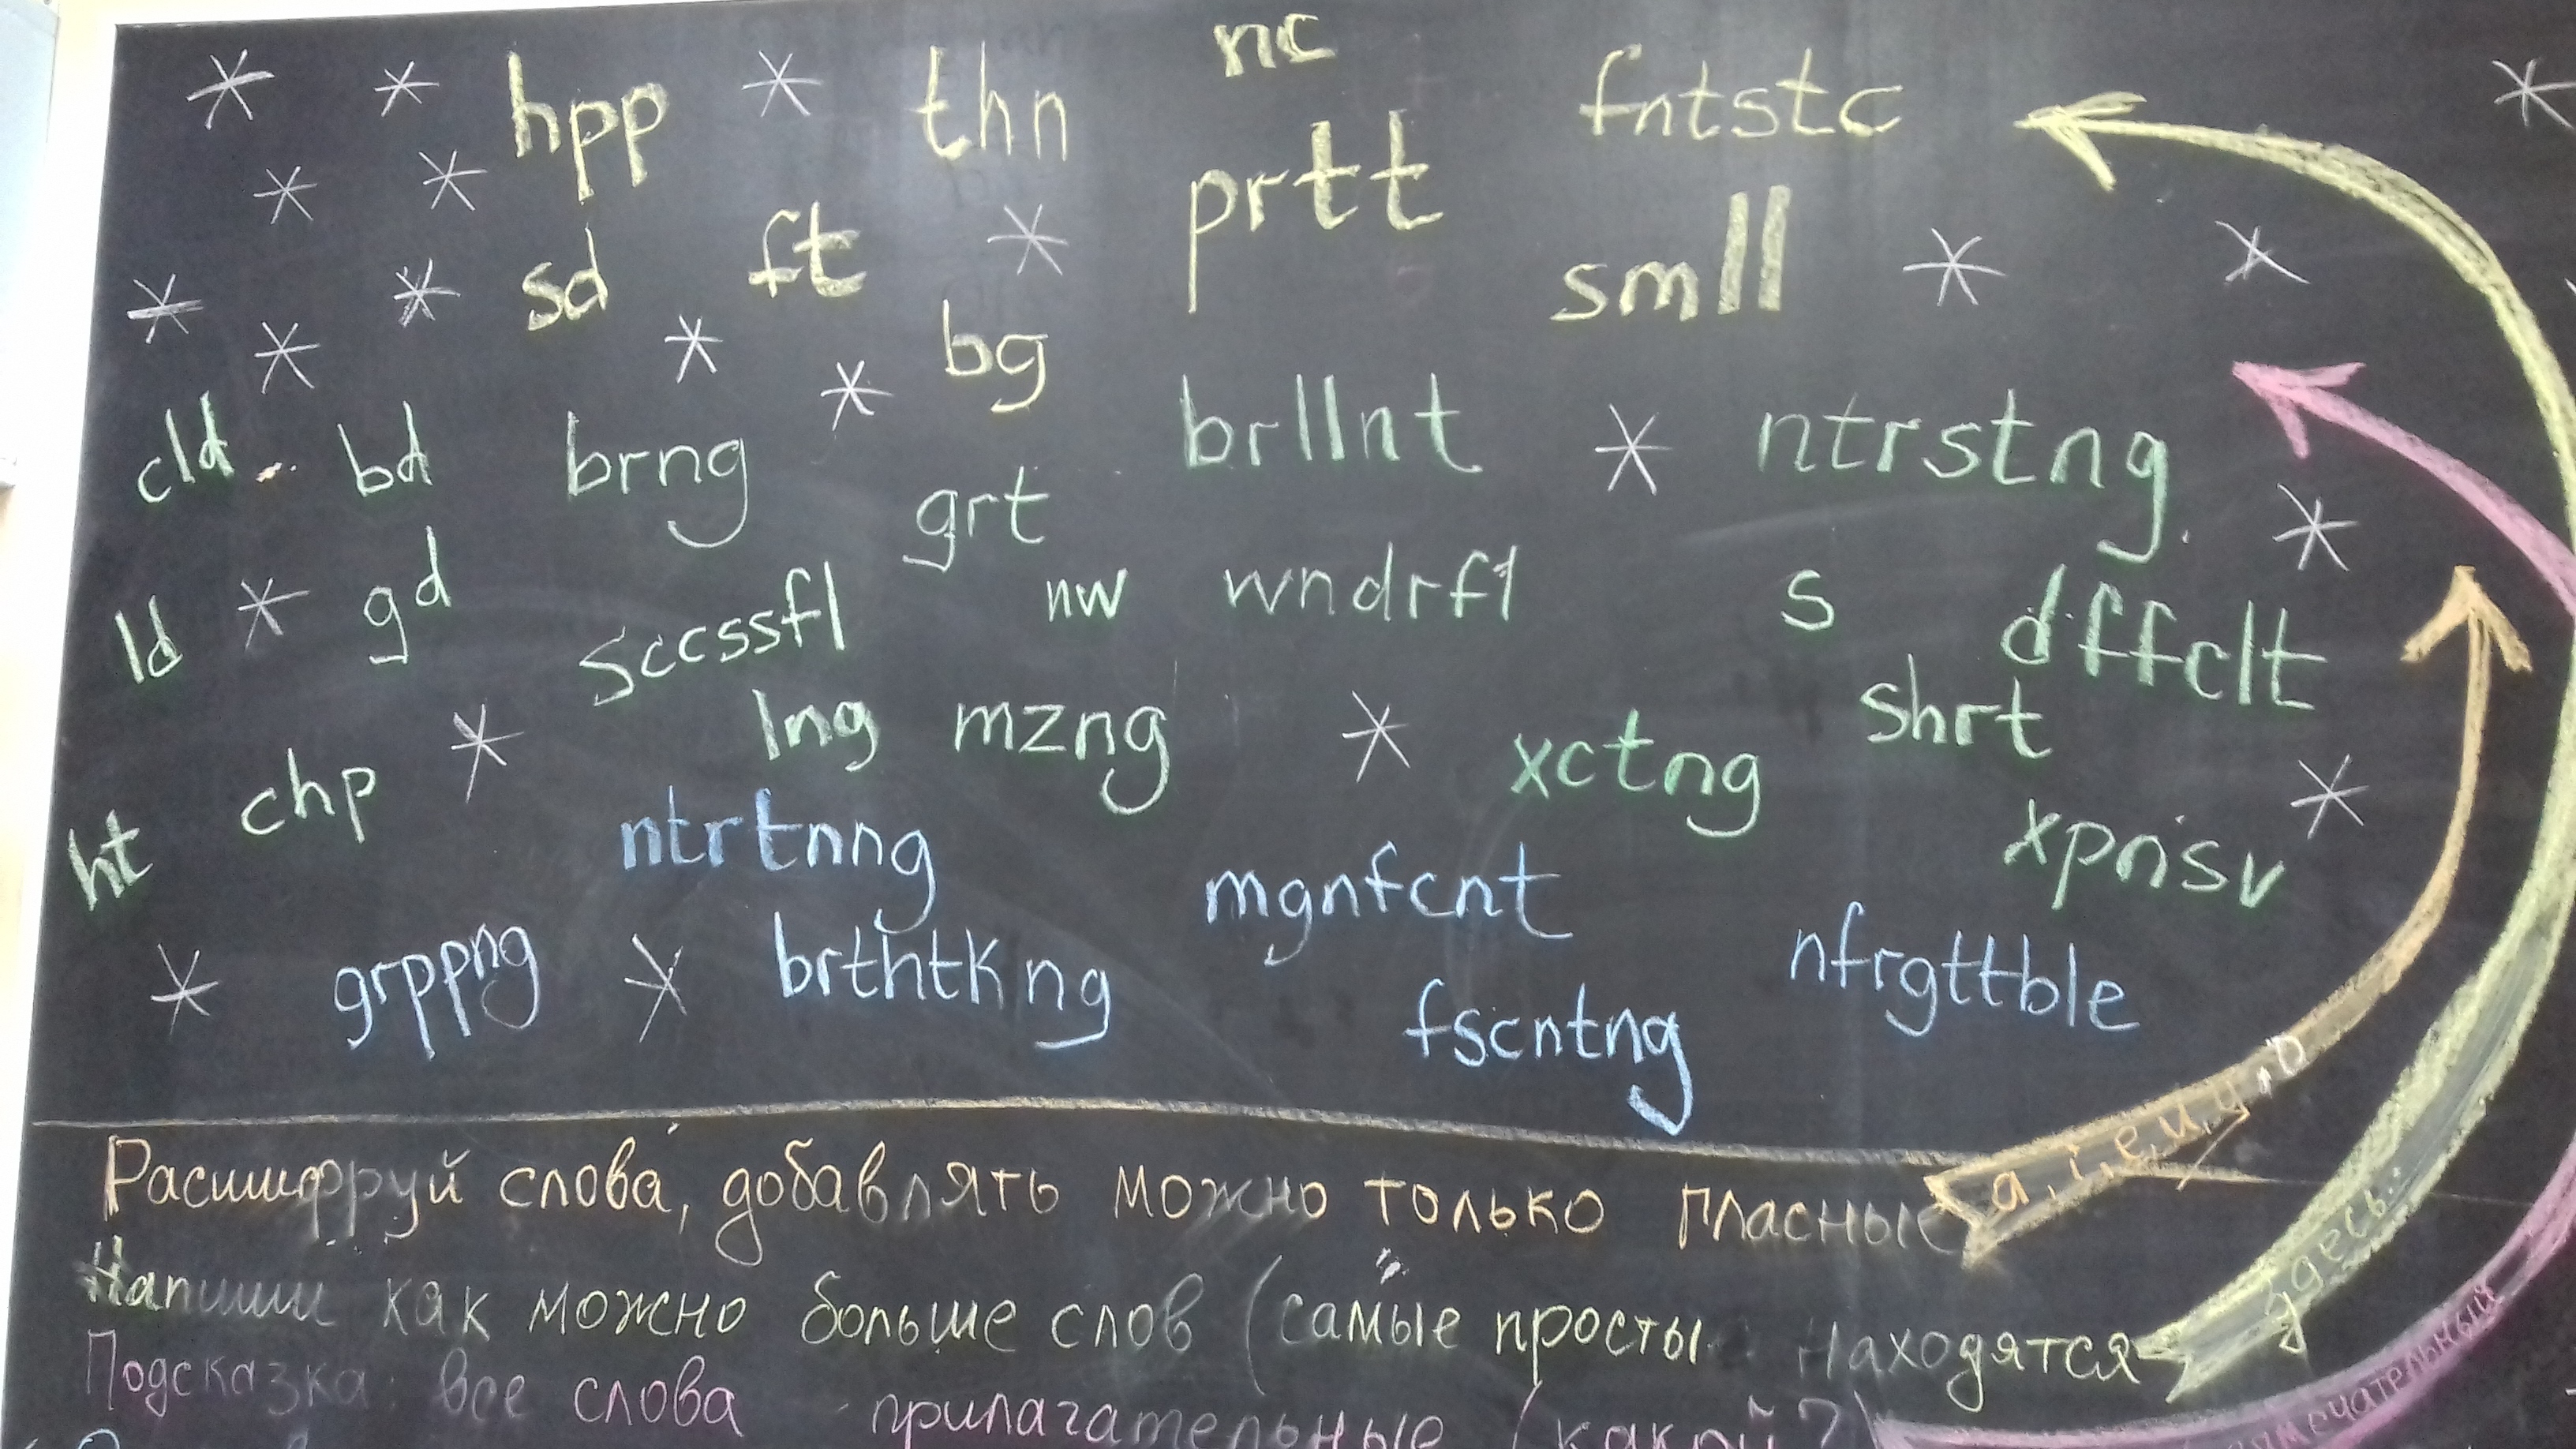 nc
hpp thn fntstc
prtt
sd ft smll
bg
cld bd brng brllnt ntrstng
grt
ld gd sccssfl nw wndrfl s dffclt
lng mzng xctng shrt
ht chp ntrtnng mgnfcnt xpnsv
grppng brthtkng fscntng nfrgttble
Расшифруй слова, добавлять можно только гласные a, i, e, u, y, o
Напиши как можно больше слов (самые просты находятся здесь..
Подсказка: все слова - прилагательные (какой?)